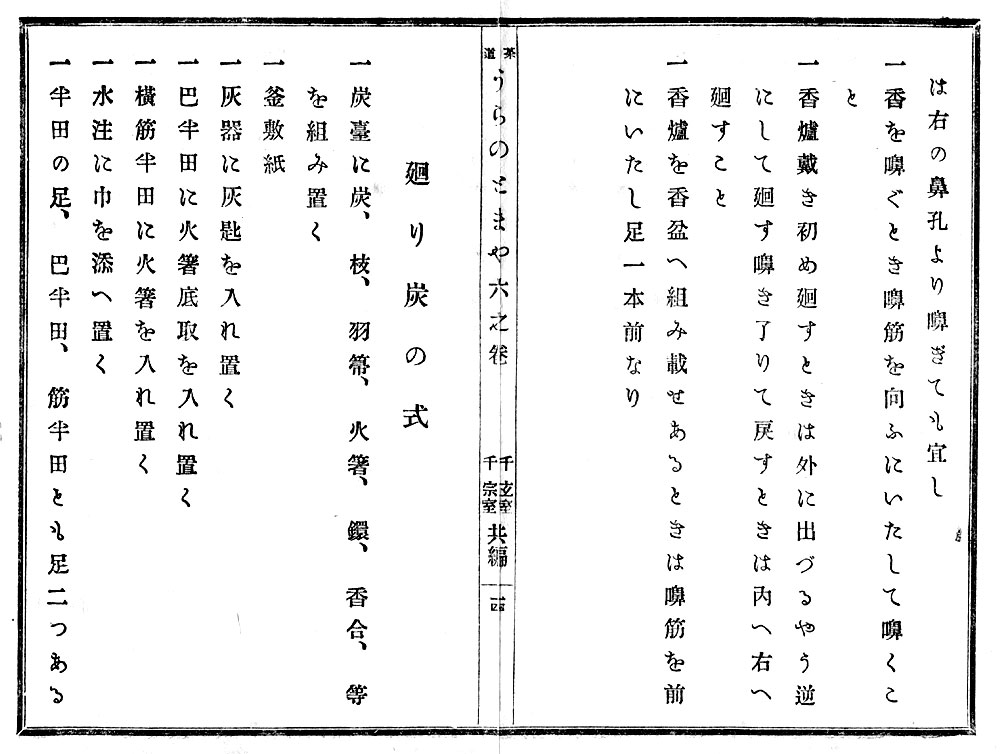 は右の鼻孔より嗅ぎても宜し
一香を嗅ぐとき嗅筋を向ふにいたして嗅くこ
と
一香爐戴き初め廻すときは外に出づるやう逆
にして廻す嗅き了りて戻すときは內へ右へ
廻すこと
一香爐を香盆へ組み載せあるときは嗅筋を前
にいたし足一本前なり
茶道 うらのとまや六之卷 千玄室 千宗室 共編 一四
廻り炭の式
一炭臺に炭、枝、羽箒、火箸、鐶、香合、等
を組み置く
一釜敷紙
一灰器に灰匙を入れ置く
一巴半田に火箸底取を入れ置く
一橫筋半田に火箸を入れ置く
一水注に巾を添へ置く
一半田の足、巴半田、筋半田とも足二つある